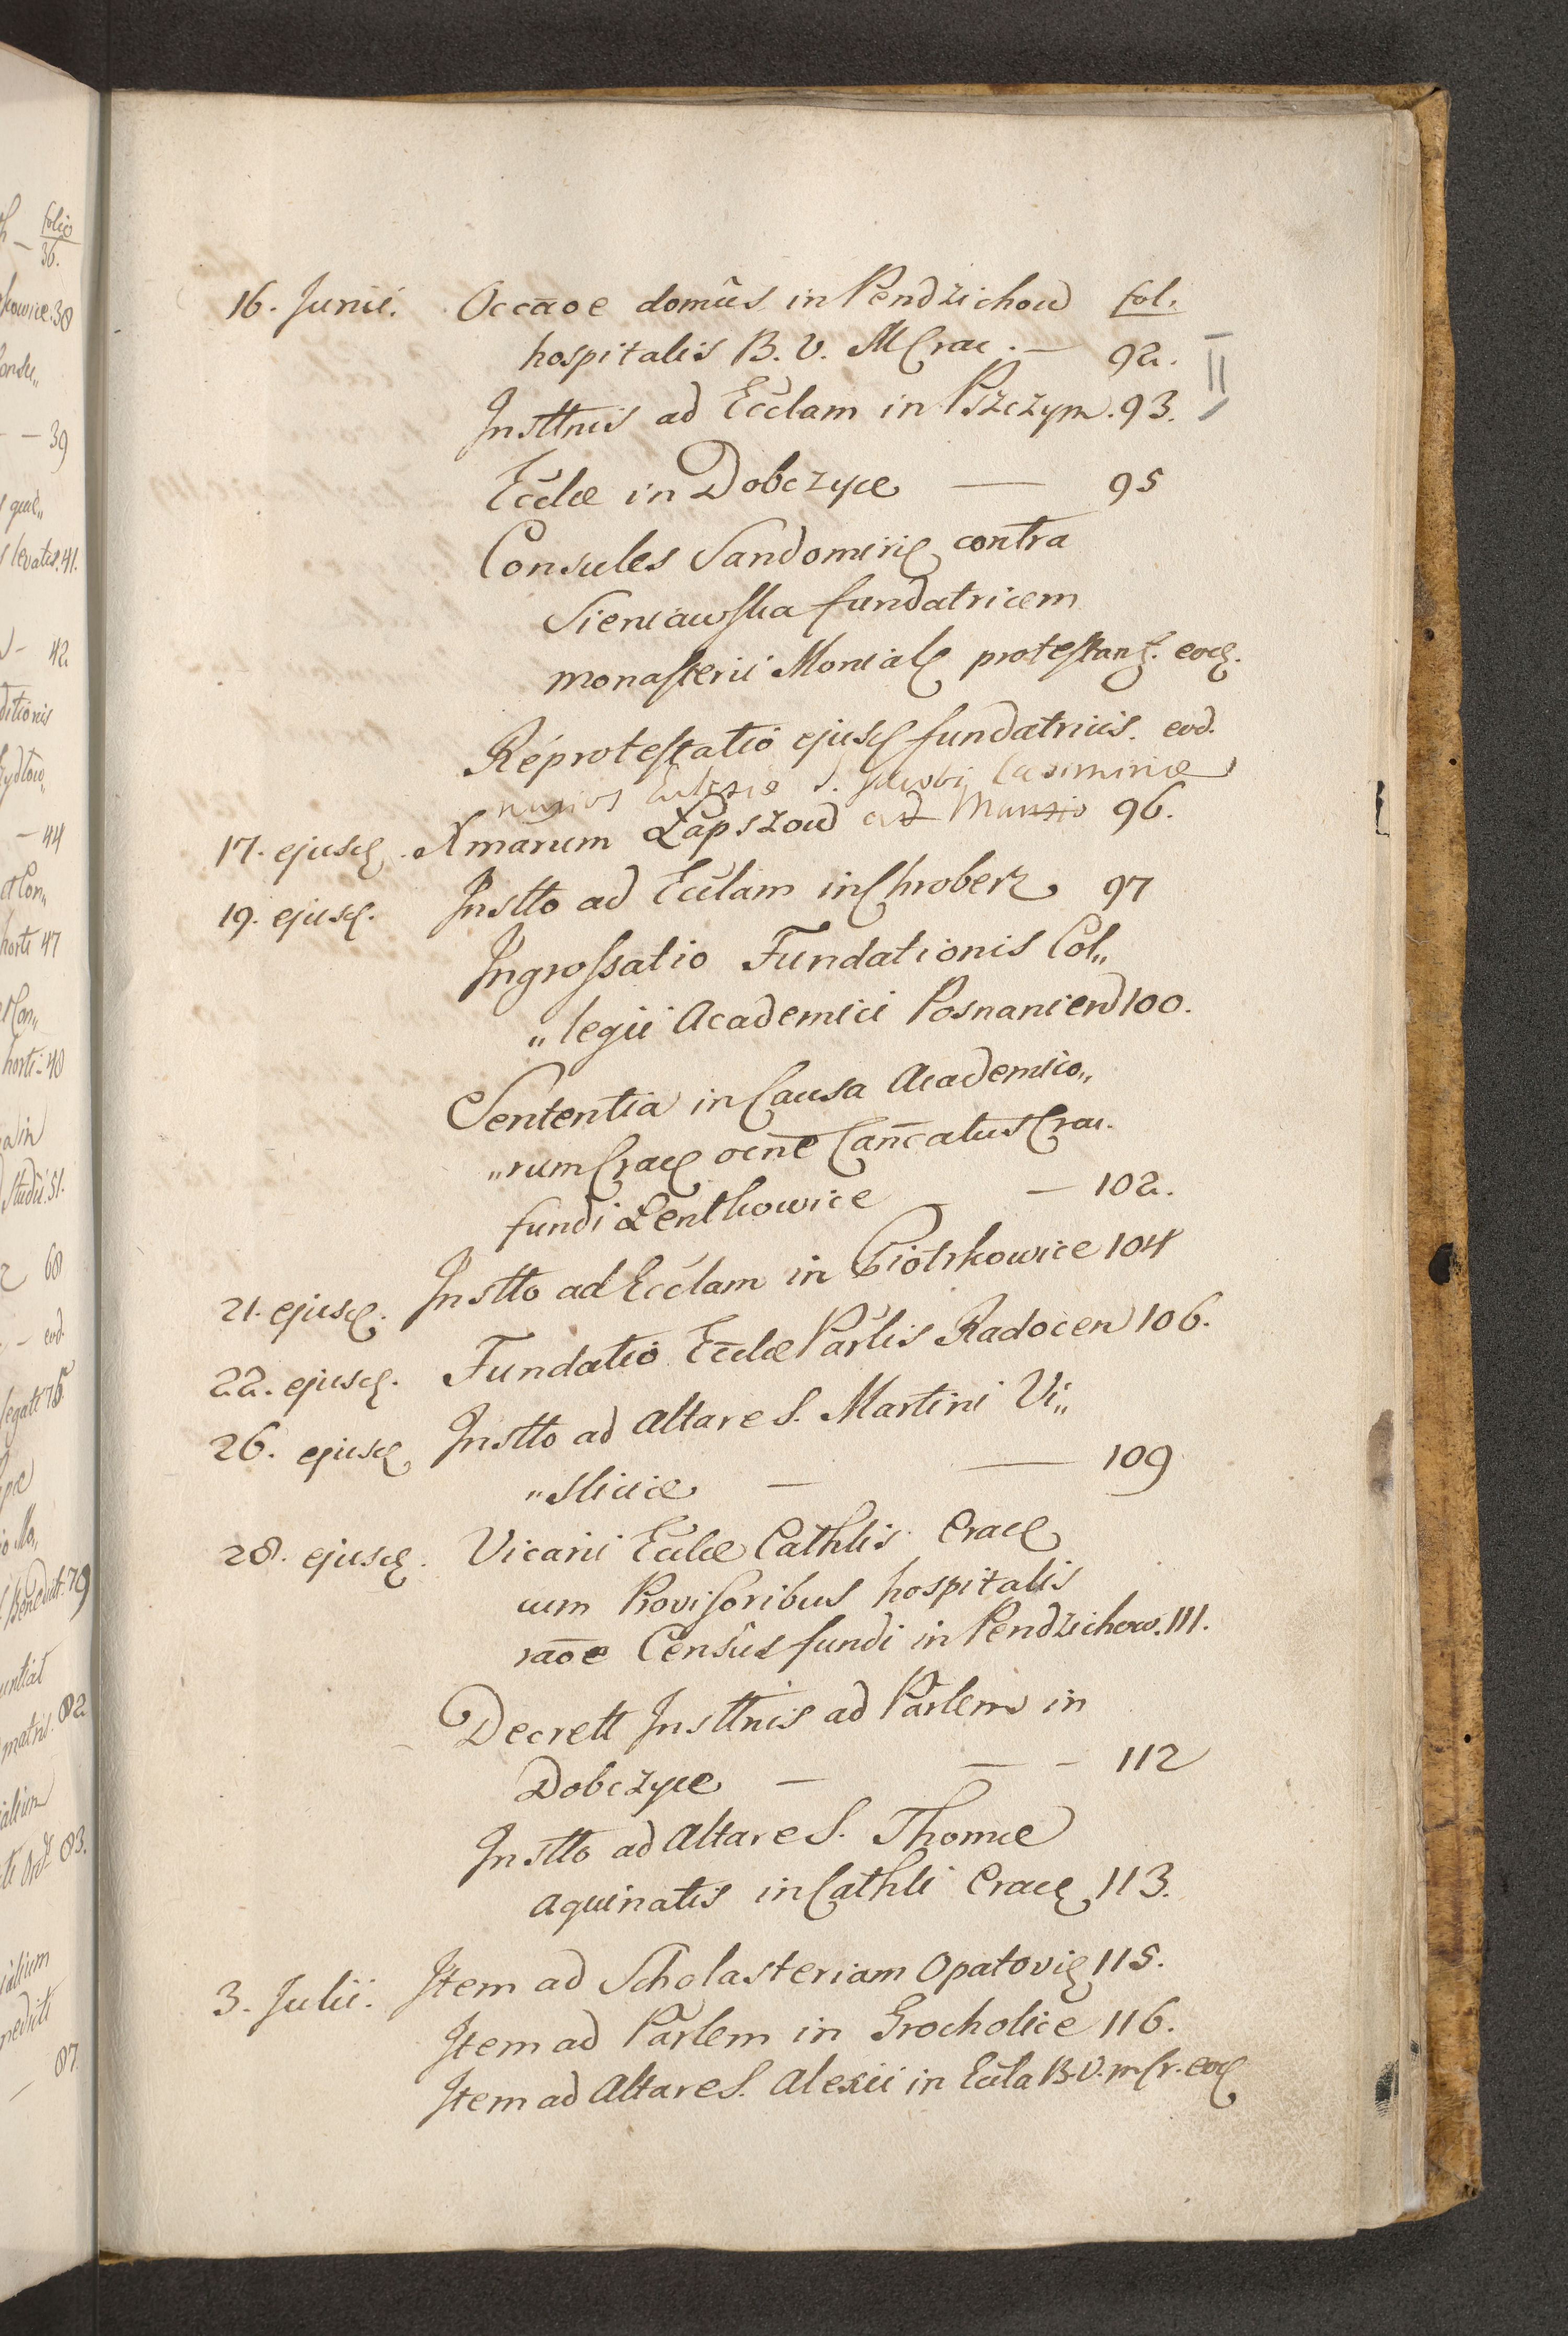 folio
36.
39
levatis. 41.
42
ditionis
44
et Con„
horti 47
horti 48
studii. 51.
68
eod.
legati 75
Benedict. 79
82
83.
87
16. Junii. Occãoe domûs in Pendzichow fol.
hospitalis B. V. M Crac. — 92.
II
Insttnis ad Ecclam in Pszczyn. 93.
Ecclæ in Dobczyce — 95
Consules Sandomirien contra
Sieniawska fundatricem
monasterii Monial protestant. eod.
Reprotestatio ejusd fundatricis. eod.
Eclesie S. Jacobi Casimiriæ
17. ejusd. Xmarum Łapszow ad 96.
19. ejusd. Instto ad Ecclam in Chroberz 97
Ingrossatio Fundationis Col„
„legii Academici Posnanien 100.
Sententia in Causa Academico„
„rum Crac ocne Cancatus Crac.
fundi Lentkowice — 102.
21. ejusd. Instto ad Ecclam in Piotrkowice 104
22. ejusd. Fundatio Ecclæ Parlis Radocen 106.
26. ejusd Instto ad Altare S. Martini Vi„
„sliciæ — — 109
28. ejusd. Vicarii Ecclæ Cathlis Crac
cum Provisoribus hospitalis
raõe Censûs fundi in Pendzichow. 111.
Decrett Insttnis ad Parlem in
Dobczyce — — - 112
Instto ad Altare S. Thomæ
Aquinatis in Cathli Crac 113.
3. Julii. Item ad Scholasteriam Opatovien 115.
Item ad Parlem in Grocholice 116.
Item ad Altare S. Alexii in Eccla B. V. M Cr. eod